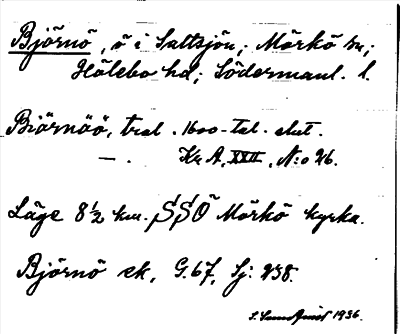 Björnö, ö i Saltsjön; Mörkö sn;
Hölebo hd; Södermanl. l.
Biörnöö, trol. 1600-tal. slut.
— . Kr. A, XXII, N:o 26.
Läge 8½ km. SSO Mörkö kyrka.
Björnö ek, G. 67, Sj: 238.
1936.